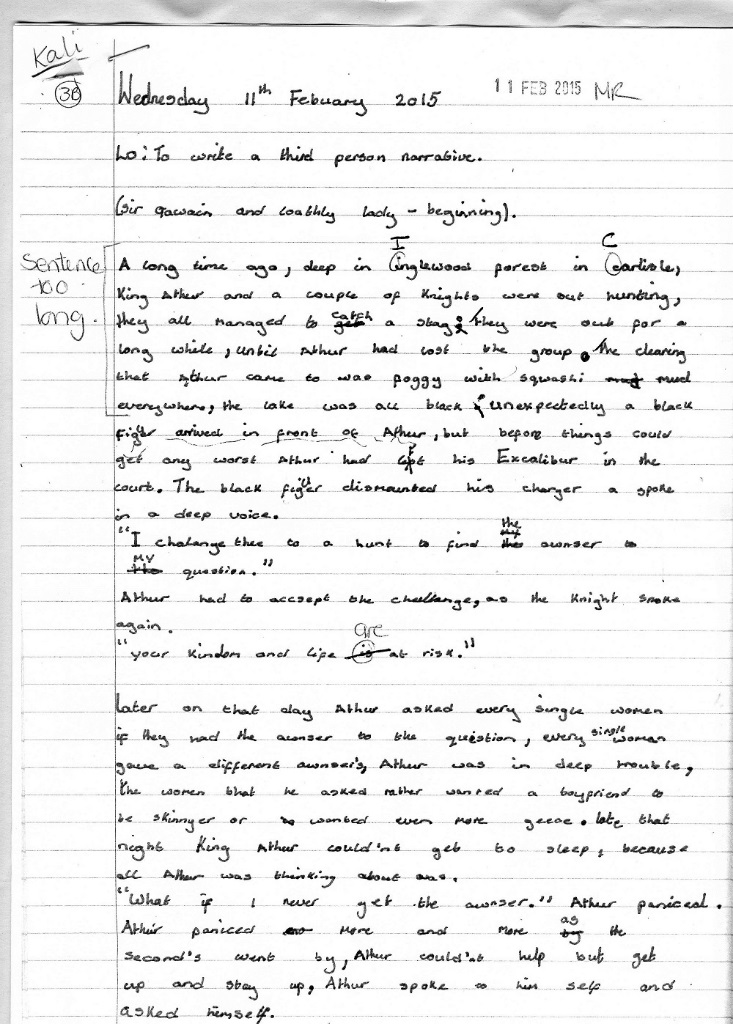 Kali
38
Wednesday 11th Febuary 2015
11 FEB 2015 MR
Lo: To write a third person narrative.
(Sir Gawain and Loathly lady - beginning).
Sentence too long.
A long time ago, deep in Inglewood forest in Carlisle,
King Athur and a couple of Knights were out hunting,
they all managed to catch a stag; they were out for a
long while, until Athur had lost the group. The clearing
that Athur came to was foggy with squashi mud
everywhere, the lake was all black; Unexpectedly a black
arrived in front of Athur, but before things could
get any worst Athur had left his Excalibur in the
court. The black dismounted his charger a spoke
in a deep voice.
"I chalange thee to a hunt to find the awnser to
my question."
Athur had to accsept the challenge, as the Knight spoke
again.
"your Kindom and life are at risk."
Later on that day Athur asked every single women
if they had the awnser to the question, every single woman
gave a different awnser's, Athur was in deep trouble,
the women that he asked rather wanted a boyfriend to
be skinnyer or wanted even more geece. late that
night King Athur could'nt get to sleep, because
all Athur was thinking about was.
"What if I never get the awnser." Athur paniced.
Athur paniced more and more as the
second's went by, Athur could'nt help but get
up and stay up, Athur spoke to him self and
asked himself.